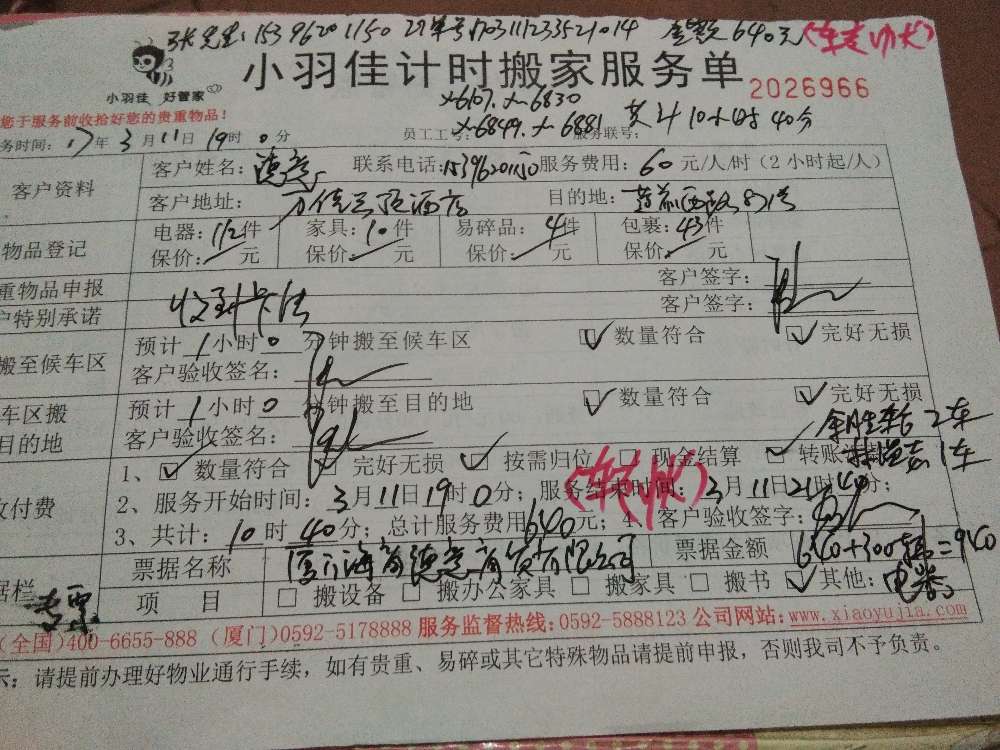 张先生: 15396201150 订单号1703111233521014 金额 640元
小羽佳 好管家
小羽佳计时搬家服务单 2026966
x-6107. x-6830
x-6849. x-6881 共计10小时40分
您于服务前收拾好您的贵重物品!
务时间: 17年3月11日19时0分 员工工号: 服务联号:
客户资料 客户姓名: 德意 联系电话: 15396201150 服务费用: 60元/人/时 (2小时起/人)
客户地址: 万佳三段酒店 目的地: 821号
物品登记 电器: 12件 家具: 10件 易碎品: 4件 包裹: 43件
保价: 元 保价: 元 保价: 元 保价: 元
重物品申报 客户签字:
户特别承诺 客户签字:
搬至候车区 预计1小时0分钟搬至候车区 ☑数量符合 ☑完好无损
客户验收签名:
车区搬 预计1小时0分钟搬至目的地 ☑数量符合 ☑完好无损
目的地 客户验收签名:
2车
1车
1、☑数量符合 ☑完好无损 ☑按需归位 □现金结算 ☑转账
收付费 2、服务开始时间: 3月11日19时0分; 服务结束时间: 3月11日21时40分;
3、共计: 10时40分; 总计服务费用640元; 4、客户验收签字:
据栏 票据名称 厦门海商德意商贸有限公司 票据金额 640+300=940
专票 项 目 □搬设备 □搬办公家具 □搬家具 □搬书 ☑其他: 电器
(全国)400-6655-888 (厦门)0592-5178888 服务监督热线:0592-5888123 公司网站:www.xiaoyujia.com
示: 请提前办理好物业通行手续, 如有贵重、易碎或其它特殊物品请提前申报, 否则我司不予负责。